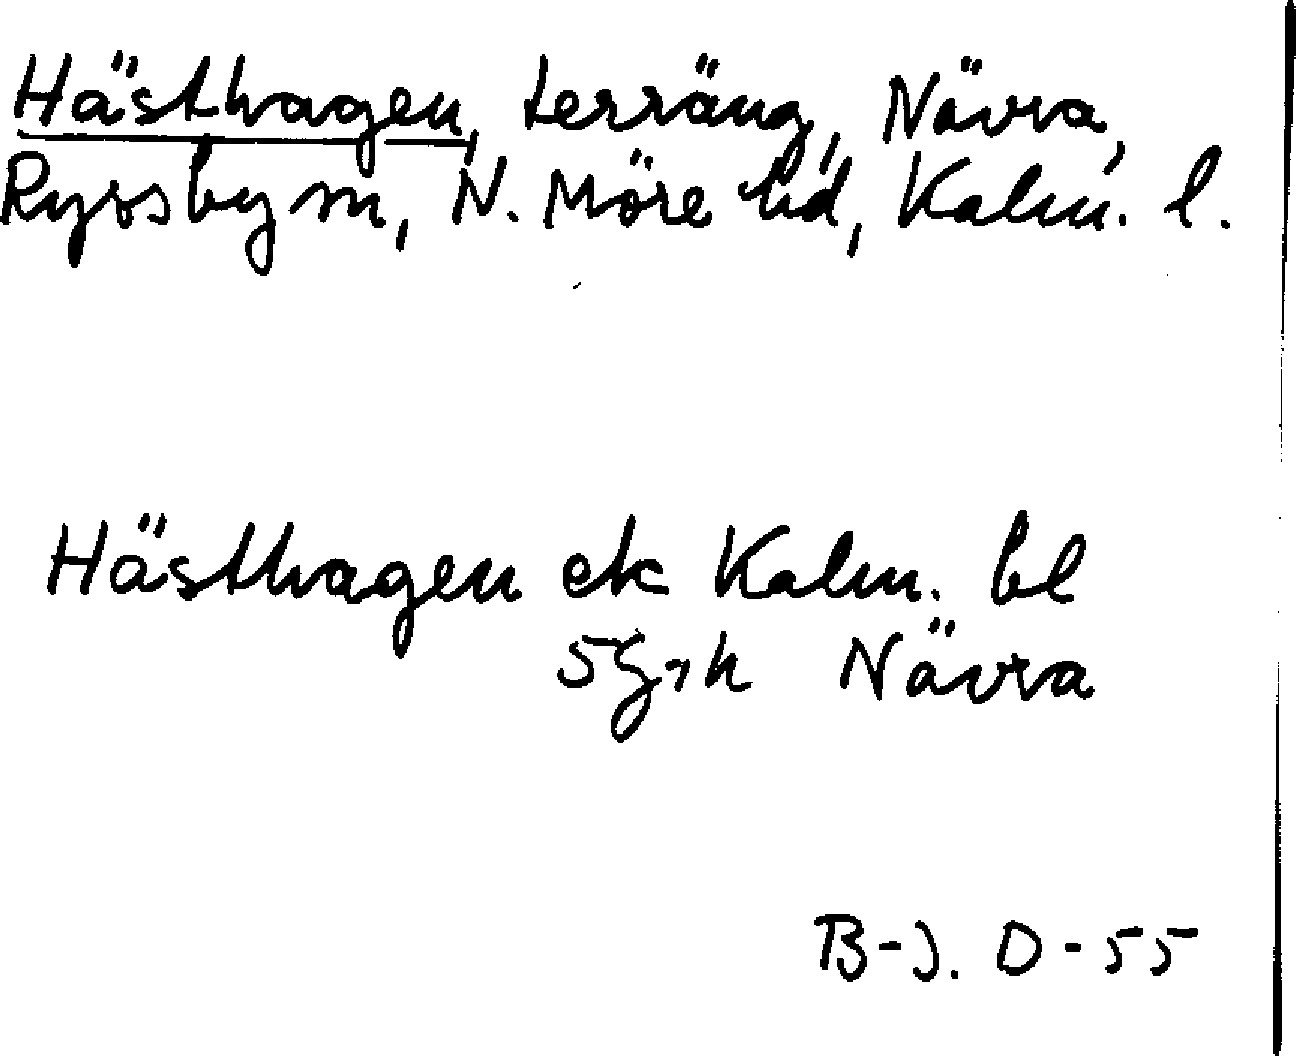 Hästhagen, terräng, Nävra,
Ryssby sn, N. Möre hd, Kalm. l.
Hästhagen ek Kalm. bl
5g,h Nävra
B-J. D-55